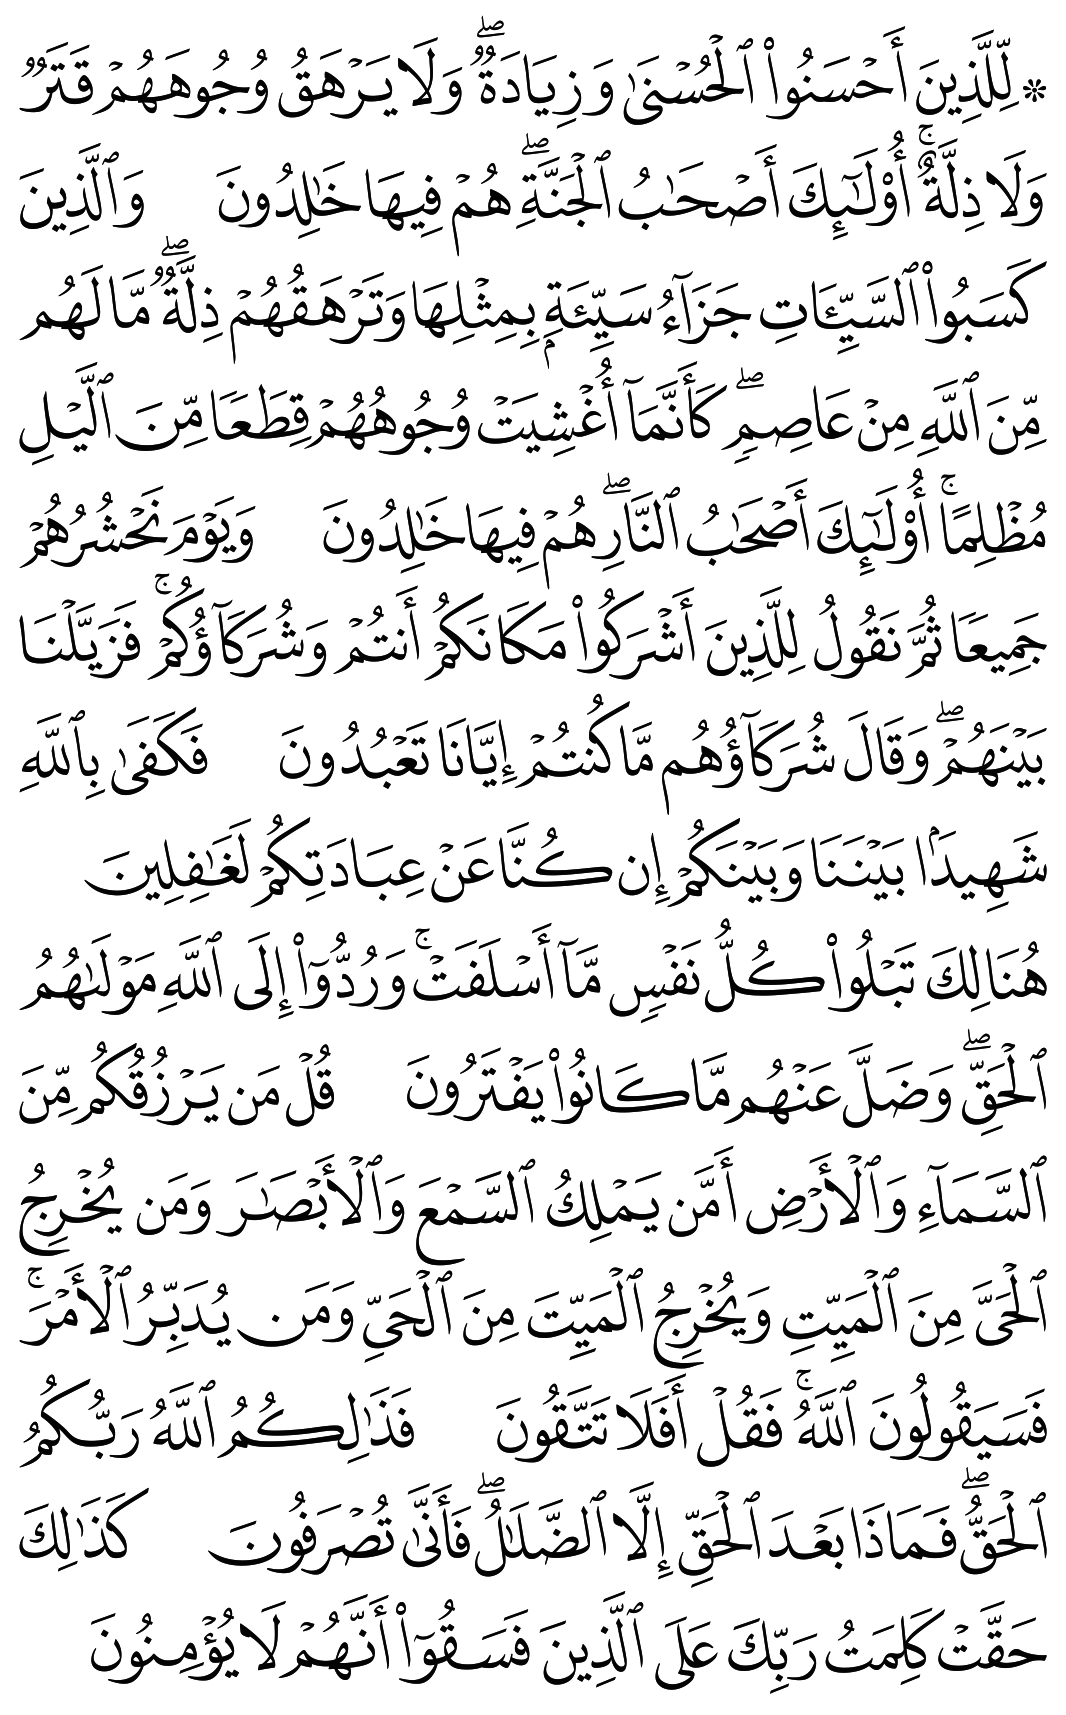 ۞ لِّلَّذِينَ أَحۡسَنُواْ ٱلۡحُسۡنَىٰ وَزِيَادَةٞۖ وَلَا يَرۡهَقُ وُجُوهَهُمۡ قَتَرٞ
وَلَا ذِلَّةٌۚ أُوْلَٰٓئِكَ أَصۡحَٰبُ ٱلۡجَنَّةِۖ هُمۡ فِيهَا خَٰلِدُونَ وَٱلَّذِينَ
كَسَبُواْ ٱلسَّيِّـَٔاتِ جَزَآءُ سَيِّئَةِۭ بِمِثۡلِهَا وَتَرۡهَقُهُمۡ ذِلَّةٞۖ مَّا لَهُم
مِّنَ ٱللَّهِ مِنۡ عَاصِمٖۖ كَأَنَّمَآ أُغۡشِيَتۡ وُجُوهُهُمۡ قِطَعٗا مِّنَ ٱلَّيۡلِ
مُظۡلِمًاۚ أُوْلَٰٓئِكَ أَصۡحَٰبُ ٱلنَّارِۖ هُمۡ فِيهَا خَٰلِدُونَ وَيَوۡمَ نَحۡشُرُهُمۡ
جَمِيعٗا ثُمَّ نَقُولُ لِلَّذِينَ أَشۡرَكُواْ مَكَانَكُمۡ أَنتُمۡ وَشُرَكَآؤُكُمۡۚ فَزَيَّلۡنَا
بَيۡنَهُمۡۖ وَقَالَ شُرَكَآؤُهُم مَّا كُنتُمۡ إِيَّانَا تَعۡبُدُونَ فَكَفَىٰ بِٱللَّهِ
شَهِيدَۢا بَيۡنَنَا وَبَيۡنَكُمۡ إِن كُنَّا عَنۡ عِبَادَتِكُمۡ لَغَٰفِلِينَ
هُنَالِكَ تَبۡلُواْ كُلُّ نَفۡسٖ مَّآ أَسۡلَفَتۡۚ وَرُدُّوٓاْ إِلَى ٱللَّهِ مَوۡلَىٰهُمُ
ٱلۡحَقِّۖ وَضَلَّ عَنۡهُم مَّا كَانُواْ يَفۡتَرُونَ قُلۡ مَن يَرۡزُقُكُم مِّنَ
ٱلسَّمَآءِ وَٱلۡأَرۡضِ أَمَّن يَمۡلِكُ ٱلسَّمۡعَ وَٱلۡأَبۡصَٰرَ وَمَن يُخۡرِجُ
ٱلۡحَيَّ مِنَ ٱلۡمَيِّتِ وَيُخۡرِجُ ٱلۡمَيِّتَ مِنَ ٱلۡحَيِّ وَمَن يُدَبِّرُ ٱلۡأَمۡرَۚ
فَسَيَقُولُونَ ٱللَّهُۚ فَقُلۡ أَفَلَا تَتَّقُونَ فَذَٰلِكُمُ ٱللَّهُ رَبُّكُمُ
ٱلۡحَقُّۖ فَمَاذَا بَعۡدَ ٱلۡحَقِّ إِلَّا ٱلضَّلَٰلُۖ فَأَنَّىٰ تُصۡرَفُونَ كَذَٰلِكَ
حَقَّتۡ كَلِمَتُ رَبِّكَ عَلَى ٱلَّذِينَ فَسَقُوٓاْ أَنَّهُمۡ لَا يُؤۡمِنُونَ